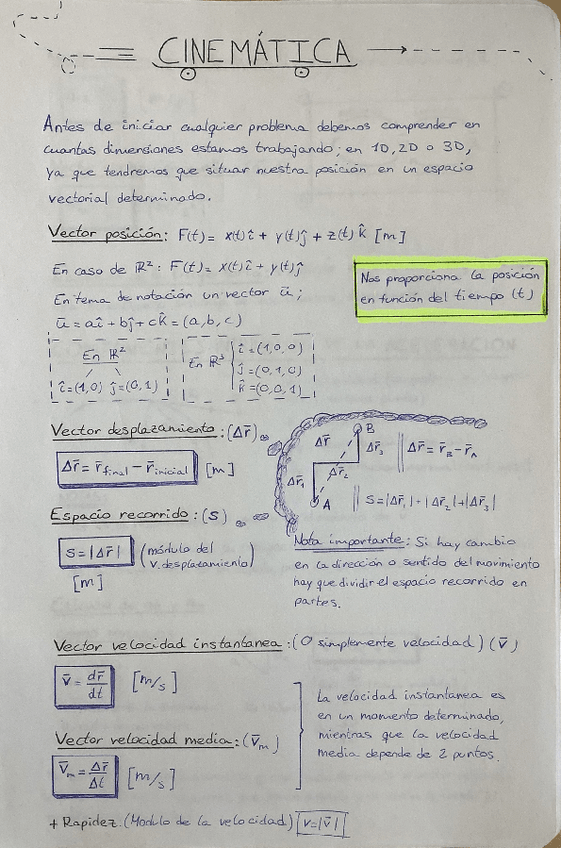 CINEMÁTICA
Antes de iniciar cualquier problema debemos comprender en
cuantas dimensiones estamos trabajando; en 1D, 2D o 3D,
ya que tendremos que situar nuestra posición en un espacio
vectorial determinado.
Vector posición: r̄(t) = x(t)î + y(t)ĵ + z(t)k̂ [m]
En caso de ℝ²: r̄(t) = x(t)î + y(t)ĵ
Nos proporciona la posición
en función del tiempo (t)
En tema de notación un vector ū;
ū = aî + bĵ + ck̂ = (a, b, c)
En ℝ²
î = (1,0) ĵ = (0,1)
En ℝ³
î = (1,0,0)
ĵ = (0,1,0)
k̂ = (0,0,1)
Vector desplazamiento: (Δr̄)
Δr̄ = r̄final − r̄inicial [m]
B
Δr̄
Δr̄₃
Δr̄₂
Δr̄₁
A
Δr̄ = r̄B − r̄A
S = |Δr̄₁| + |Δr̄₂| + |Δr̄₃|
Espacio recorrido: (S)
S = |Δr̄| (módulo del
v. desplazamiento)
[m]
Nota importante: Si hay cambio
en la dirección o sentido del movimiento
hay que dividir el espacio recorrido en
partes.
Vector velocidad instantanea: (O simplemente velocidad) (v̄)
v̄ = dr̄/dt [m/s]
Vector velocidad media: (v̄m)
v̄m = Δr̄/Δt [m/s]
La velocidad instantanea es
en un momento determinado,
mientras que la velocidad
media depende de 2 puntos.
+ Rapidez. (Modulo de la velocidad) v = |v̄|